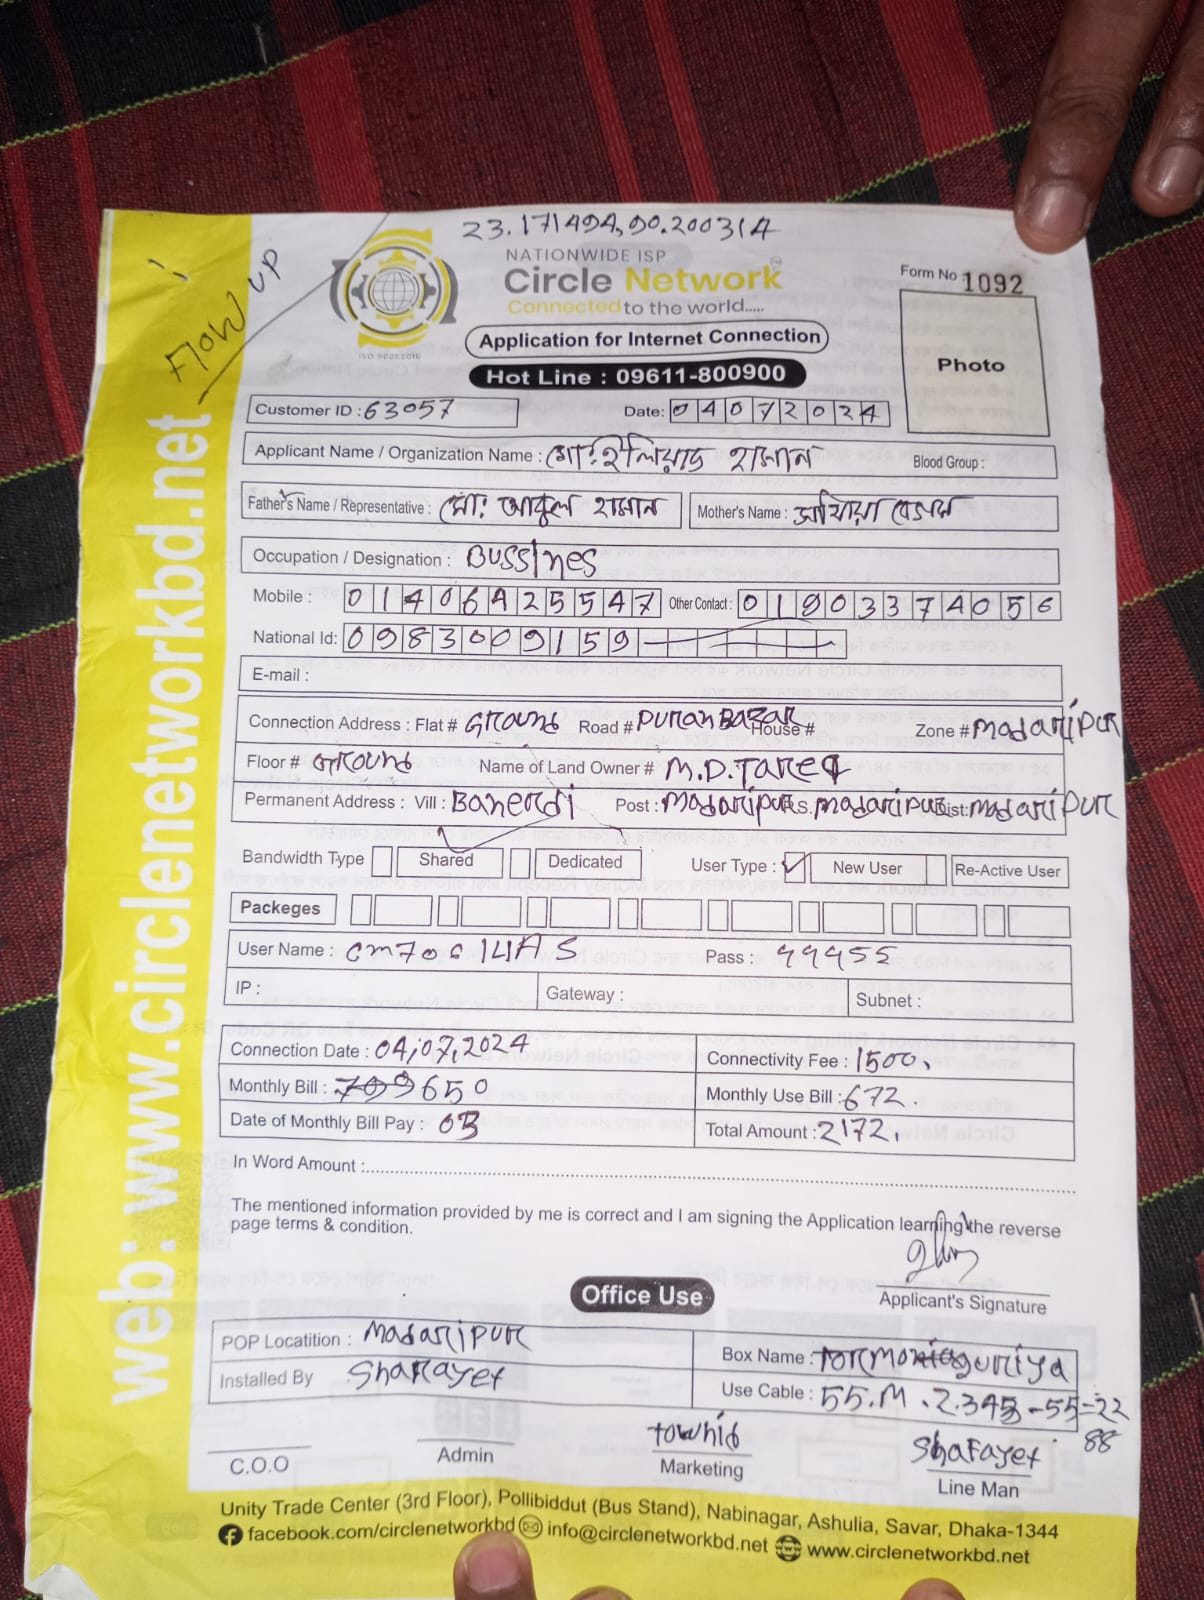 23.171494,90.200314
NATIONWIDE ISP
Circle Network
Connected to the world.....
ISO 9001:2015
Form No 1092
Photo
Flow UP
Application for Internet Connection
Hot Line : 09611-800900
Customer ID : 63057 Date: 04072024
Applicant Name / Organization Name : মো: ইলিয়াছ হাসান Blood Group :
Father's Name / Representative : মো: আবুল হাসান Mother's Name : বেগম
Occupation / Designation : BUSSINES
Mobile : 01406425547 Other Contact : 01903374056
National Id: 0983009159
E-mail :
Connection Address : Flat # Ground Road # Puran Bazar House # Zone # Madaripur
Floor # Ground Name of Land Owner # M.D.Tareq
Permanent Address : Vill : Banerdi Post : Madaripur P.S. Madaripur Dist: Madaripur
Bandwidth Type Shared Dedicated User Type : ✓ New User Re-Active User
Packeges
User Name : Pass : 99955
IP : Gateway : Subnet :
Connection Date : 04,07,2024 Connectivity Fee : 1500.
Monthly Bill : 709 650 Monthly Use Bill : 672.
Date of Monthly Bill Pay : 03 Total Amount : 2172.
In Word Amount :
The mentioned information provided by me is correct and I am signing the Application learning the reverse
page terms & condition.
Applicant's Signature
Office Use
POP Locatition : Madaripur Box Name :
Installed By Shafayet Use Cable : 55.M . 2.343 - 55 = 22
88
C.O.O
Admin
Towhid
Marketing
Shafayet
Line Man
Unity Trade Center (3rd Floor), Pollibiddut (Bus Stand), Nabinagar, Ashulia, Savar, Dhaka-1344
facebook.com/circlenetworkbd info@circlenetworkbd.net www.circlenetworkbd.net
web: www.circlenetworkbd.net